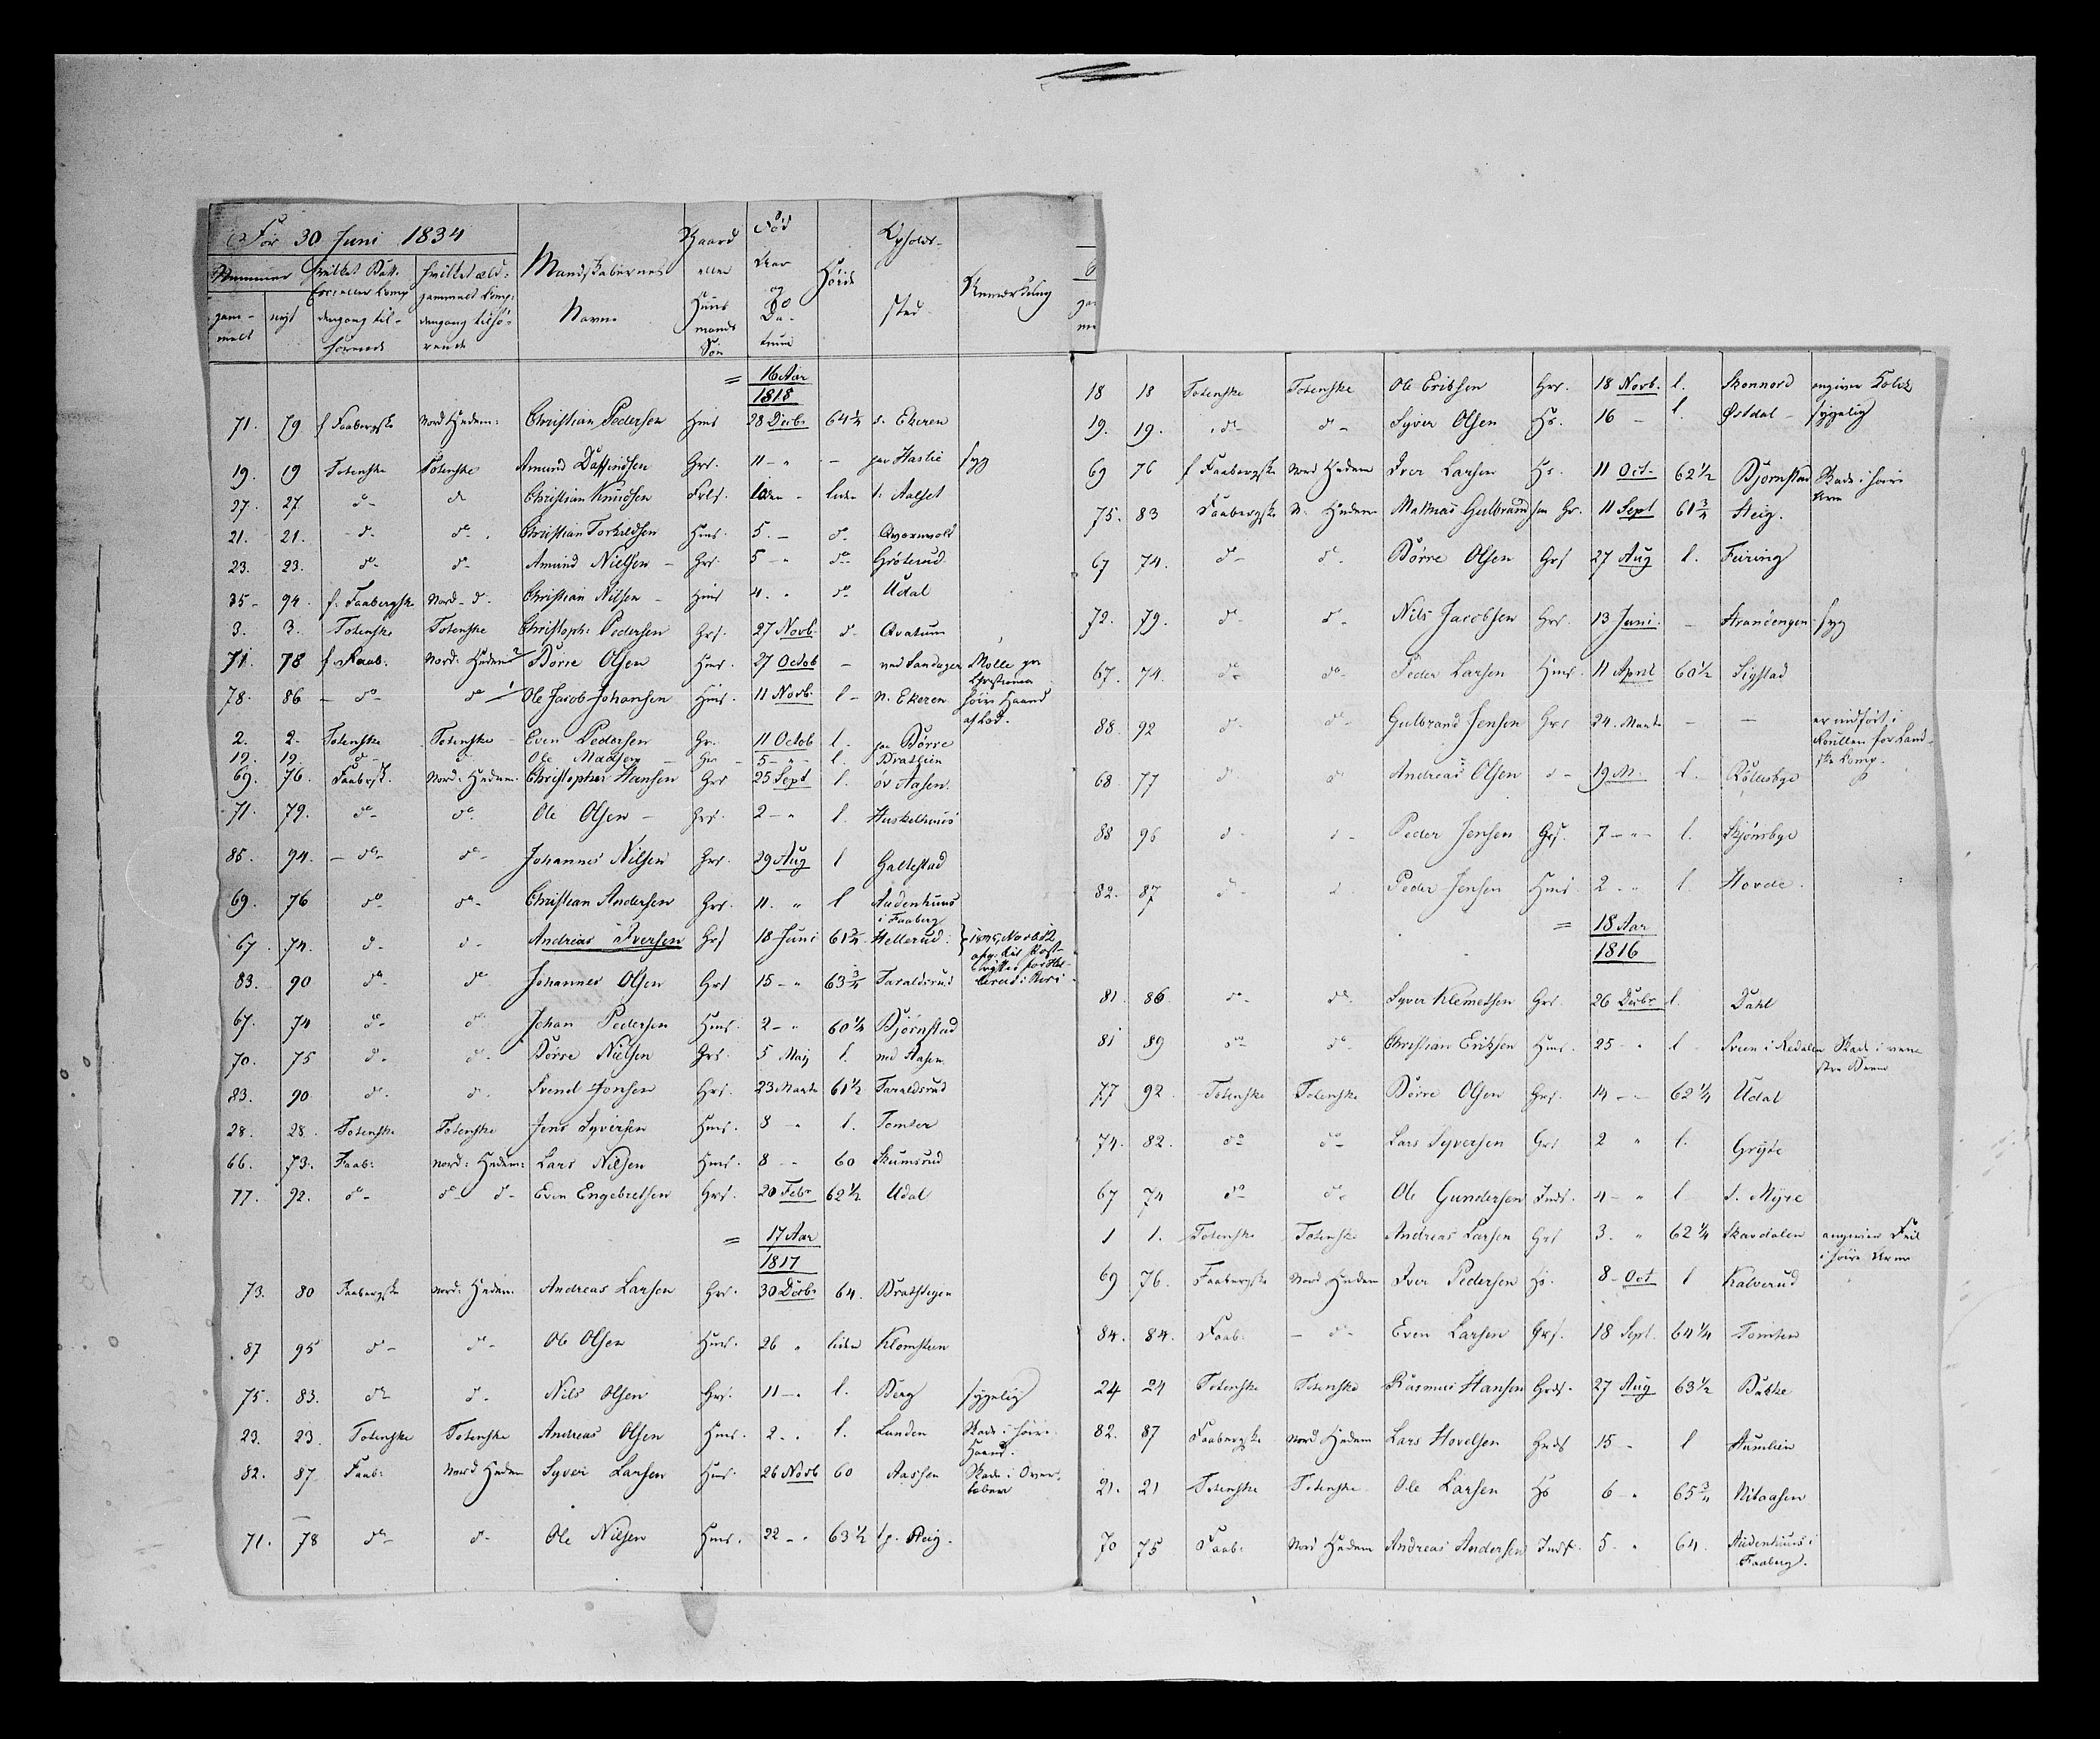 Før 30 Juni 1834
Nummer hvilket Batt. hvilket ald- Mandskabernes Gaard Fød Høide Opholds- Anmærkning
gam- nyt Corps eller Comp gammelt Comp: Navne eller Aar sted
melt dengang til- dengang tilhø- Huus og
hørende rende mands Da-
Søn tum
= 16 Aar
1818
71. 79 f Faabergske Nord Hedem: Christian Pedersen Hms 28 Decbr 64 1/2 s. Ekeren
19. 19 Totenske Totenske Amund Daffindsen Grs. 11 - " - paa Haslie syg
27. 27 do do Christian Knudsen liden Aalset
21. 21. do do Christian Torkildsen Hms. 5. - do Qvernvold
23. 23. do do Amund Nielsen Grs. 5 - " do Grøterud
35 - 94. f. Faabergske Nord - d. Christian Nilsen Hms 4. " do Udal
3. 3. Totenske Totenske Christoph: Pedersen Grs. 27 Novb. do Qvatum
71. 78 f. Faab. Nord: Hedem Børre Olsen Hms. 27 Octob - ned Sandager
78. 86 - do do Ole Jacob Johansen Hms. 11 Novb. l - n. Ekeren høire Haand
2. 2. Totenske Totenske Even Pedersen Gr. 11 Octob l. paa Børre
19. 19. d d Ole Madsen Grs 5 - " - l. Bratlien
69. 76. Faabsk. Nord: Hedem. Christopher Hansen Grs 25 Sept l. øv Aasen.
71. 79. do do Ole Olsen - Grs. 2 - " l. Huskelhuus
85. 94. - do do Johannes Nilsen Grs. 29 Aug l Galtestad
69. 76 do do Christian Andersen Grs. 11. " l Audenhuus
i Faaberg
67. 74. d - d - Andreas Iversen Grs 18 Juni 61 3/4 Hellerud.
83. 90 do do Johannes Olsen Grs 15 - " 63 3/4 Taraldsrud
67. 74 do do Johan Pedersen Hms. 2 - " 60 1/4 Bjørnstad
70. 75 d - d - Børre Nielsen Grs. 5 Maij l. ned Aasen
83. 90 d - d - Svend Jonsen Grs. 23 Marts 61 1/2 Taraldsrud
28. 28. Totenske Totenske Jens Syversen Hms. 8 - " l. Tomter
66. 73. Faab: Nord: Hedem: Lars Nilsen Hms. 8 - - 60 Skumsrud
77. 92. do - do - d - Even Engebretsen Grs. 20 Febr 62 1/2 Udal
= 17 Aar
1817
73. 80 Faabergske Nord: Hedem. Andreas Larsen Grs. 30 Decbr 64. Brathstigen
87 95 d - d - Ole Olsen Hms. 26 " liden Klomsteen
75. 83. do d - Nils Olsen Grs. 11 - " l. Berg sygelig
23. 23. Totenske Totenske Andreas Olsen Hms. 2 - . l. Lunden Skade i høire
Haand.
82. 87 Faab: Nord Hedem Syver Larsen Hms. 26 Novb 60 Aassen Skade i Over-
læben
71. 78 do d - Ole Nilsen Hms. 22 - " 63 1/2
18 18 Totenske Totenske Ole Eriksen Grs. 18 Novb. l. Skonnord angiver Kolik
19. 19. do do Syver Olsen Hs. 16 - l. Østdal - sygelig
69 76 f Faabergske Nord Hedem Iver Larsen Hs. 11 Oct. 62 1/2 Bjørnstad Skade i høire
Arm
75. 83 Faabergske N. Hedem Mathias Gulbrandsen Gr. 11 Sept 61 3/4 Steig.
67 74. do do Børre Olsen Grs 27 Aug l. Furing
72. 79. do do Nils Jacobsen Grs. 13 Juni. - Strandengen syg
67. 74. do do Peder Larsen Hms. 11 April 60 1/2 Sigstad
88. 92 d - do Gulbrand Jensen Grs 24. Marts - - er indført i
Roullen for Land-
ske Comp.
68. 77 d - do Andreas Olsen d - 19 M. l.
88 96 d - d - Peder Jensen Grs. 7 - " - l. Skjønsbye
82. 87 do d - Peder Jensen Hms. 2 - " l. Hovde.
= 18 Aar
1816
81. 86. do do Syver Klemetsen Grs. 26 Decbr l. Dahl
81 89 do do Christian Eriksen Hms. 25 - " l Sveen i Redalen Skade i ven-
stre Been
77 92. Totenske Totenske Børre Olsen Grs. 14 - - 62 1/4 Udal
74. 82. do do Lars Syversen Grs 2 " l. Gryte
67 74 do do Ole Gundersen Inds. 4 - " l s. Myre
1 1. Totenske Totenske Andreas Larsen Grs 3. " 62 1/4 Skardalen angiver Feil
i høire Arm
69 76. Faabergske Nord Hedem Iver Pedersen Hs. 8 - Oct l Kalverud
84. 84. Faab. - do - Even Larsen Grs. 18 Sept. 64 1/4 Tomten
24 24 Totenske Totenske Rasmus Hansen Grds. 27 Aug 63 1/2 Bakke
82. 87 Faabergske Nord Hedem Lars Hovelsen Grds 15 - l Aumlien
21. 21 Totenske Totenske Ole Larsen Hs 6 - " 65 3/4
70 75 Faab: Nord Hedem Andreas Andersen Inds. 5. " 64. Audenhuus i
Faaberg.